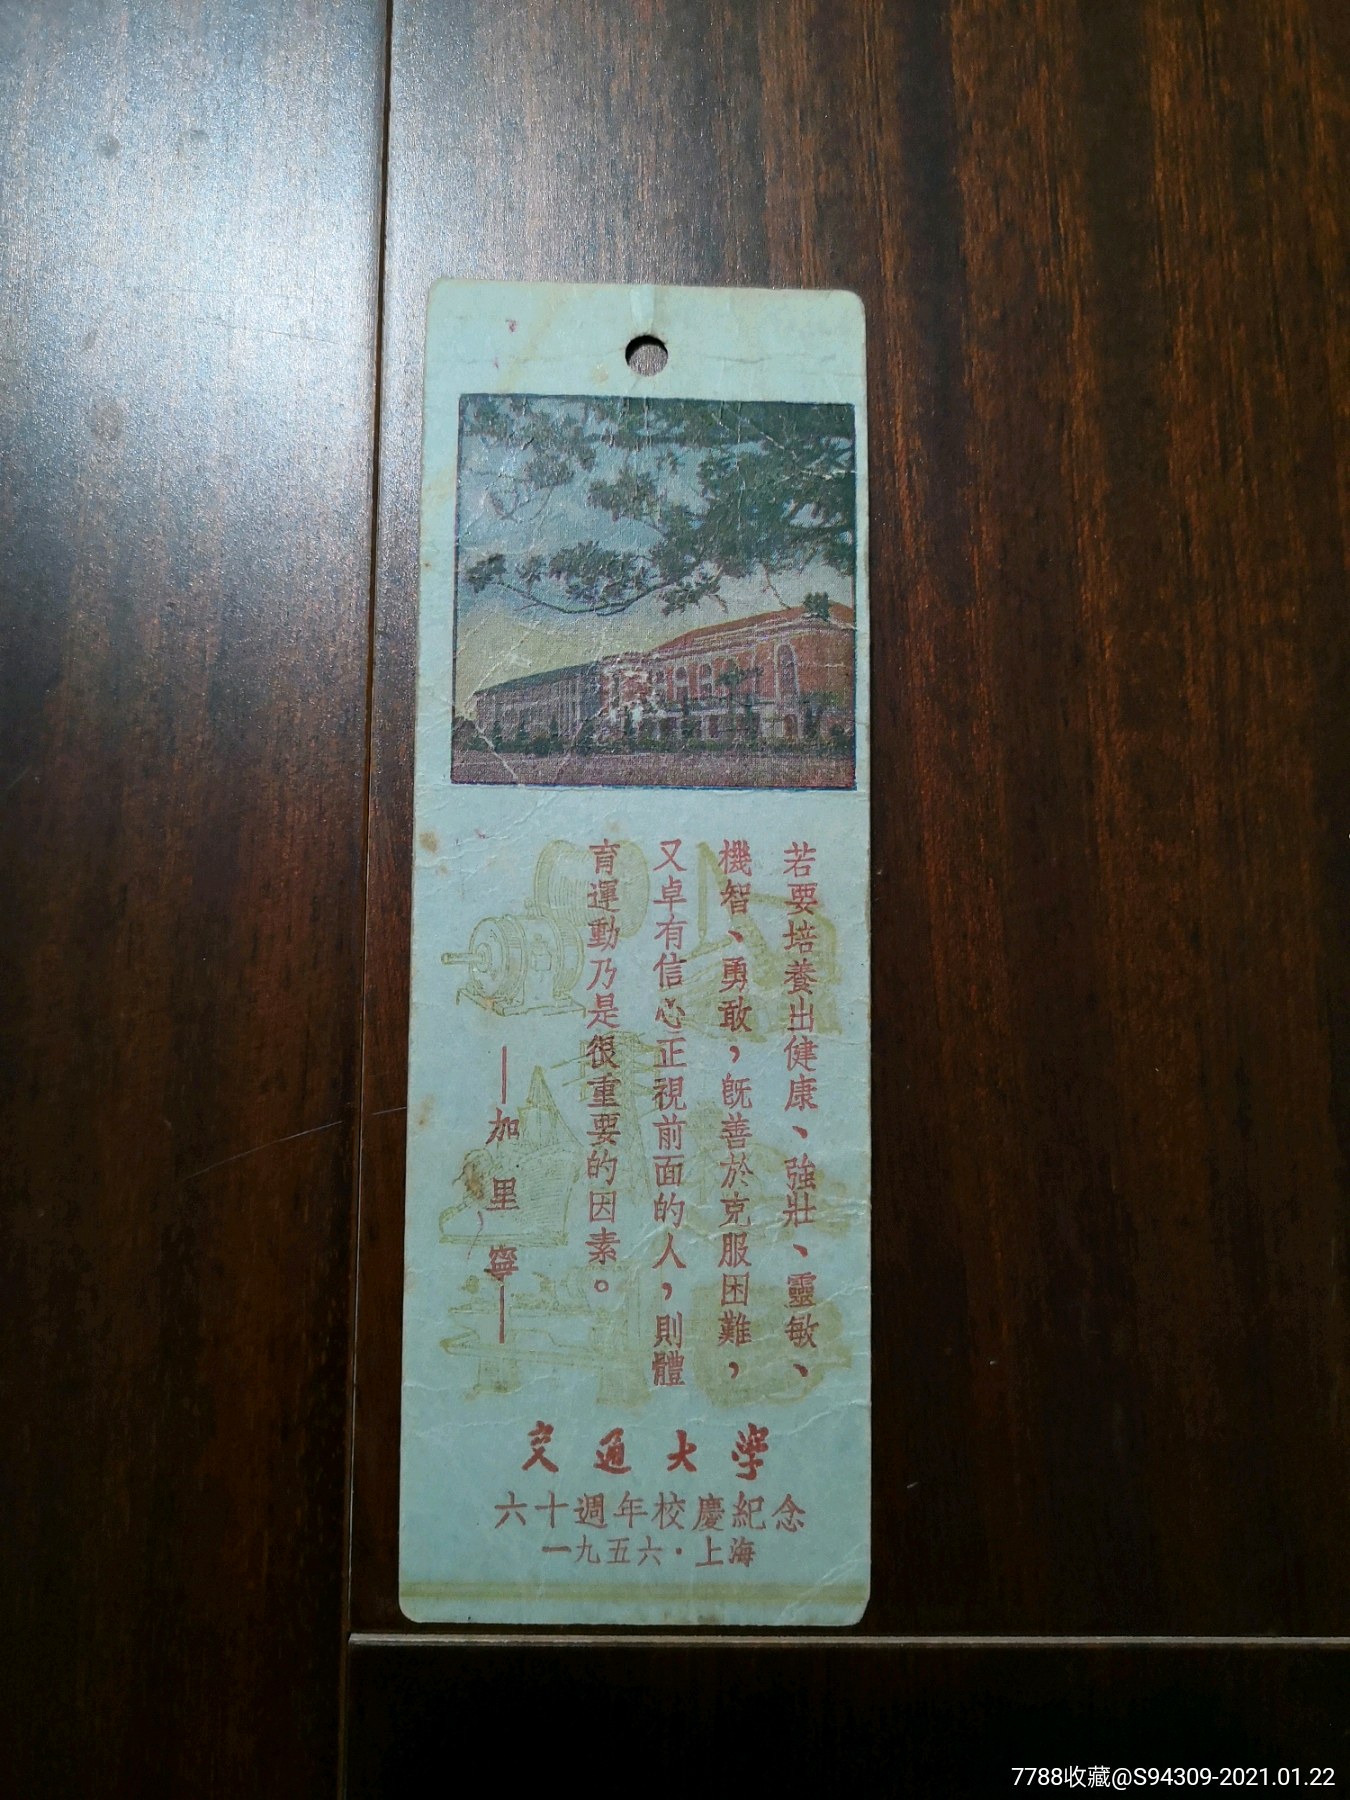 若要培養出健康、強壯、靈敏、
機智、勇敢，既善於克服困難，
又卓有信心正視前面的人，則體
育運動乃是很重要的因素。
—加里寧—
交通大學
六十週年校慶紀念
一九五六·上海
7788收藏@S94309-2021.01.22